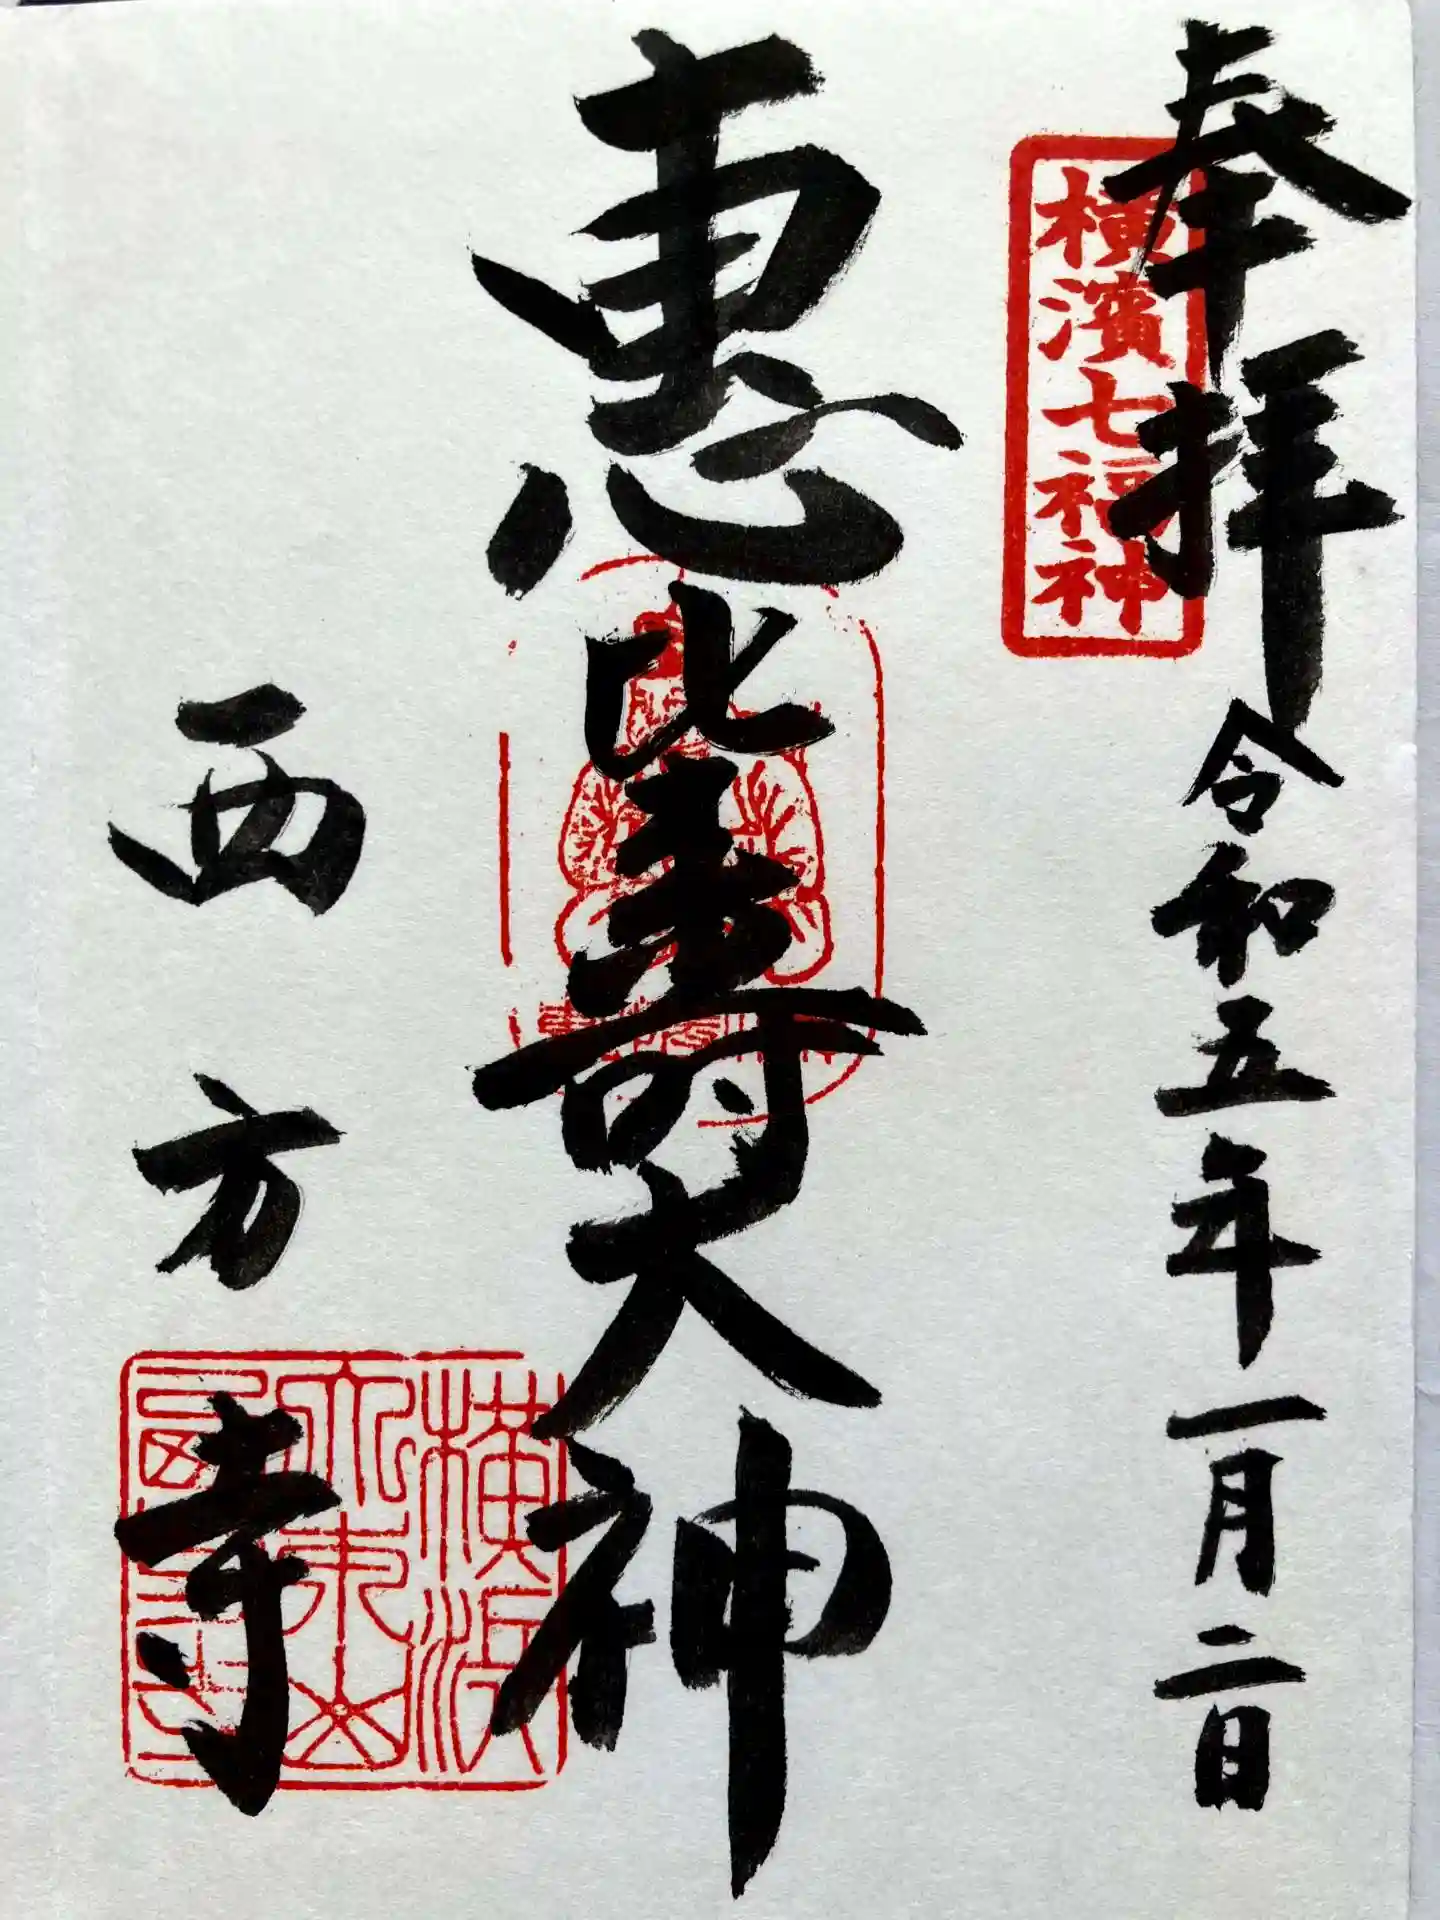 奉拝
横濱七福神
令和五年一月二日
恵比寿大神
西方寺
横浜